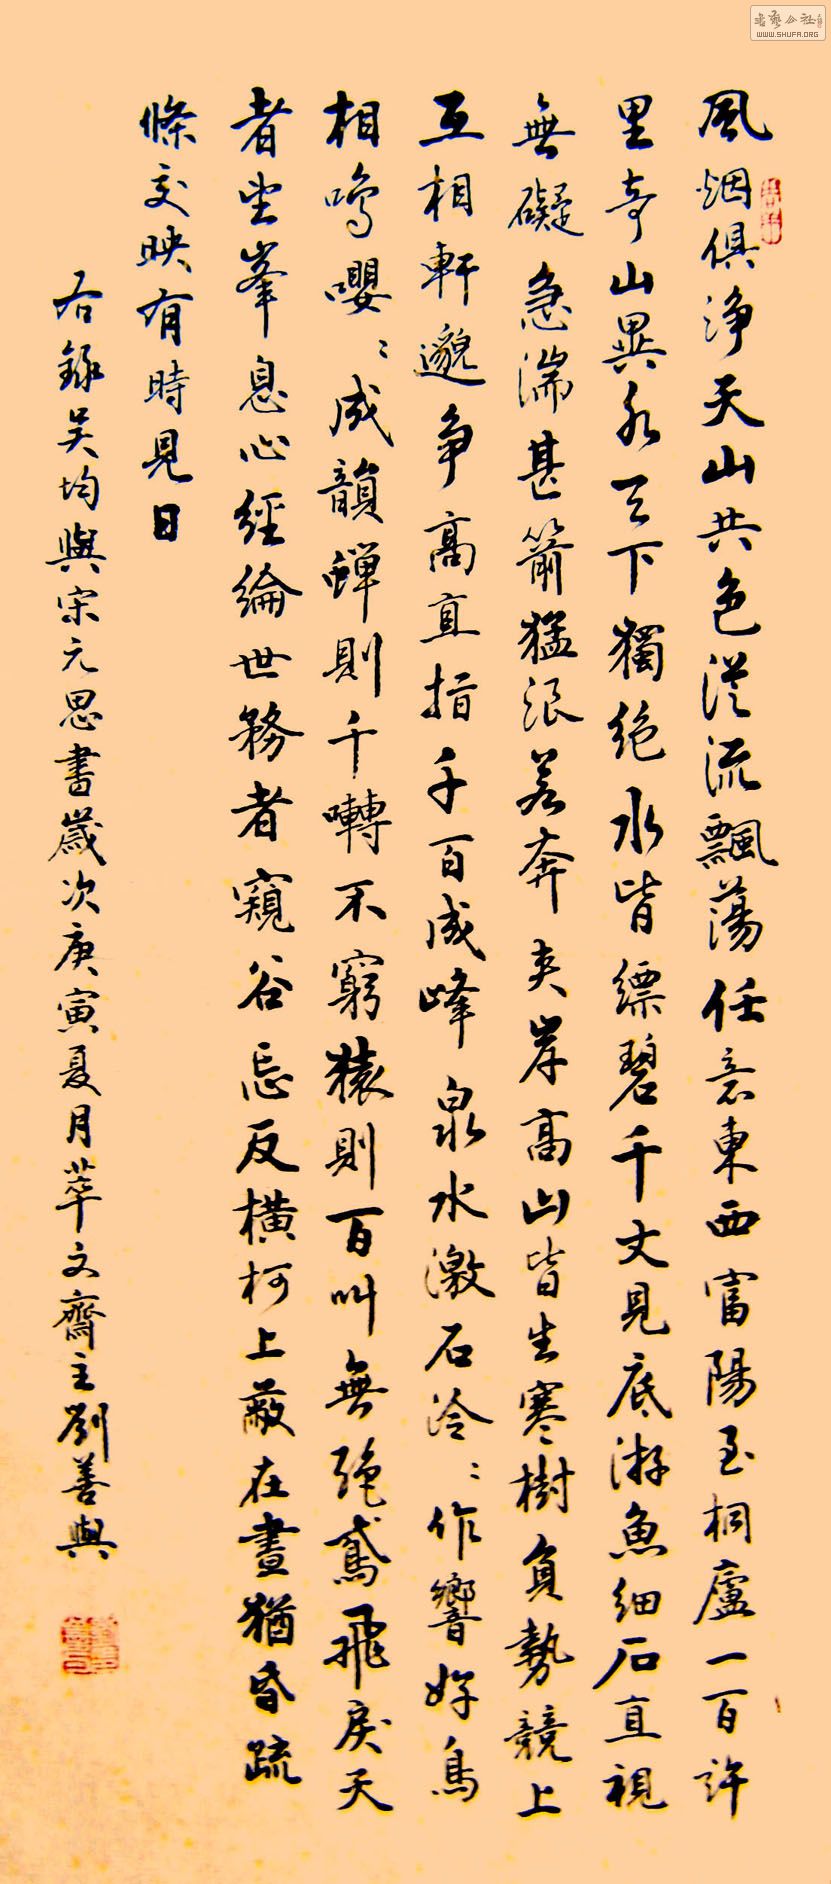 風烟俱淨天山共色從流飄蕩任意東西富陽至桐廬一百許
里奇山異水天下獨絕水皆縹碧千丈見底游魚細石直視
無礙急湍甚箭猛浪若奔夹岸高山皆生寒樹負勢競上
互相軒邈爭高直指千百成峰泉水激石泠:作響好鳥
相鳴嚶:成韻蟬則千囀不窮猿則百叫無絕鳶飛戾天
者望峯息心經綸世務者窺谷忘反橫柯上蔽在晝猶昏疏
條交映有時見日
右錄吴均與宋元思書歲次庚寅夏月萃文齋主劉善興
WWW.SHUFA.ORG